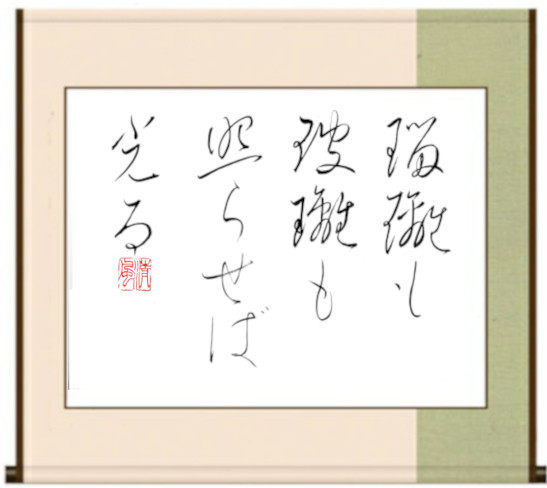 瑠璃も
玻璃も
照らせば
光る
清風